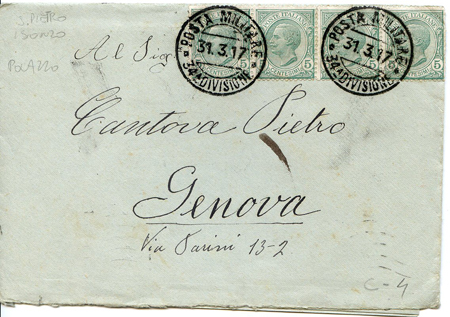 S. PIETRO
ISONZO
POSTE ITALIANE
5 CENTESIMI 5
POSTA MILITARE
31.3.17
34ª DIVISIONE
POSTA MILITARE
31.3.17
34ª DIVISIONE
Al Sig
Cantova Pietro
Genova
Via Parini 13-2
C-4